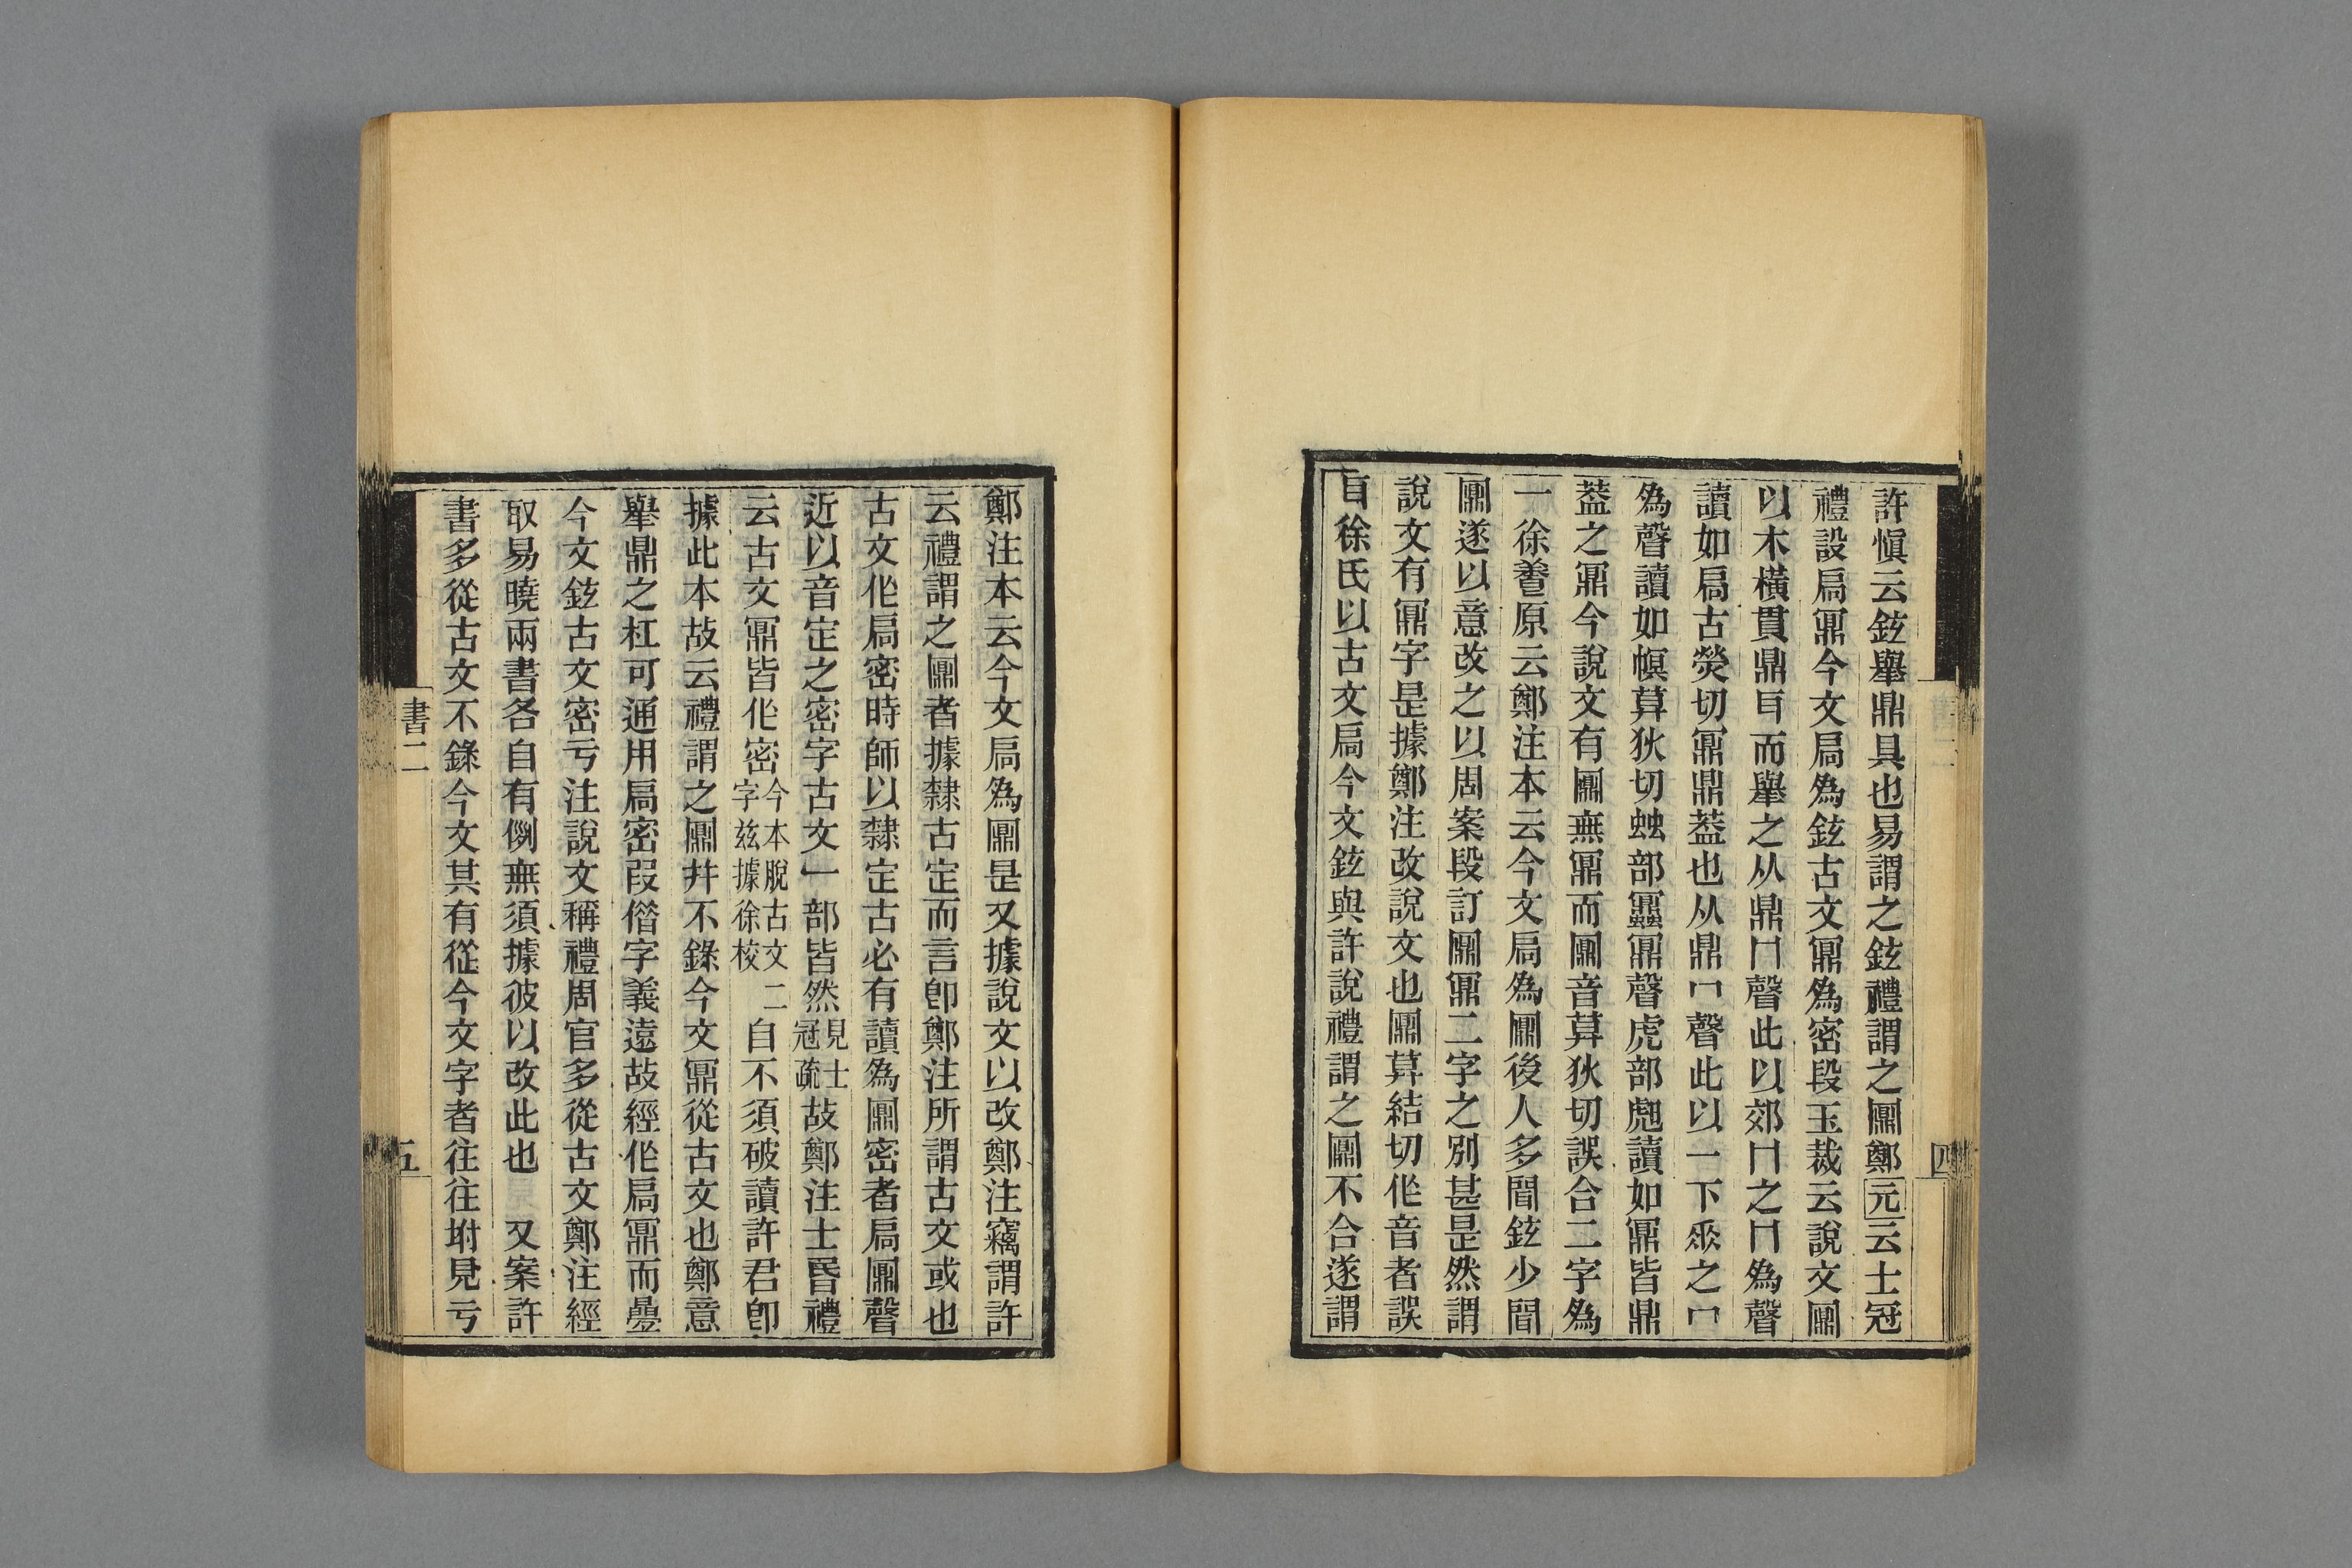 許愼云鉉舉鼎具也易謂之鉉禮謂之鼏鄭元云士冠
禮設扃鼏今文扃爲鉉古文鼏爲密段玉裁云說文鼏
以木橫貫鼎耳而舉之从鼎冂聲此以郊冂之冂爲聲
讀如扃古熒切鼏鼎葢也从鼎冖聲此以一下𠂹之冖
爲聲讀如幎莫狄切䖵部𧖅鼏聲虎部𧇭讀如鼏皆鼎
葢之鼏今說文有鼏無鼏而鼏音莫狄切誤合二字爲
一徐養原云鄭注本云今文扃爲鼏後人多聞鉉少聞
鼏遂以意改之以周案段訂鼏鼏二字之別甚是然謂
說文有鼏字是據鄭注改說文也鼏莫結切作音者誤
自徐氏以古文扃今文鉉與許說禮謂之鼏不合遂謂
鄭注本云今文扃爲鼏是又據說文以改鄭注竊謂許
云禮謂之鼏者據隸古定而言卽鄭注所謂古文或也
古文作扃密時師以隸定古必有讀爲鼏密者扃鼏聲
近以音定之密字古文冖部皆然見士冠疏故鄭注士昬禮
云古文鼏皆作密今本脫古文二字茲據徐校自不須破讀許君卽
據此本故云禮謂之鼏幷不錄今文鼏從古文也鄭意
舉鼎之杠可通用扃密叚借字義遠故經作扃鼏而疊
今文鉉古文密亏注說文稱禮周官多從古文鄭注經
取易曉兩書各自有例無須據彼以改此也　又案許
書多從古文不錄今文其有從今文字者往往坿見亏
書二
四
五